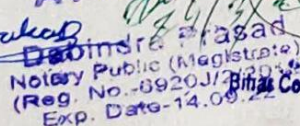 Debindra Prasad
Notary Public (Magistrate)
(Reg. No.-6920J/2
Bihar Co
Exp. Date-14.09.22